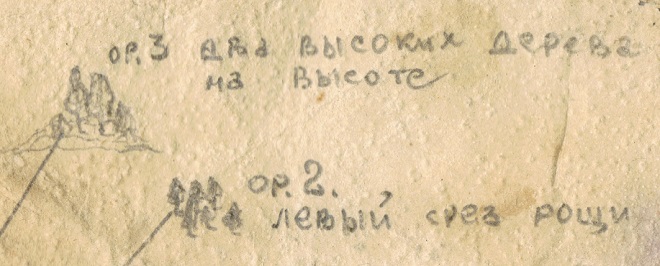 ор.3 два высоких дерева
на высоте
ор.2.
левый срез рощи